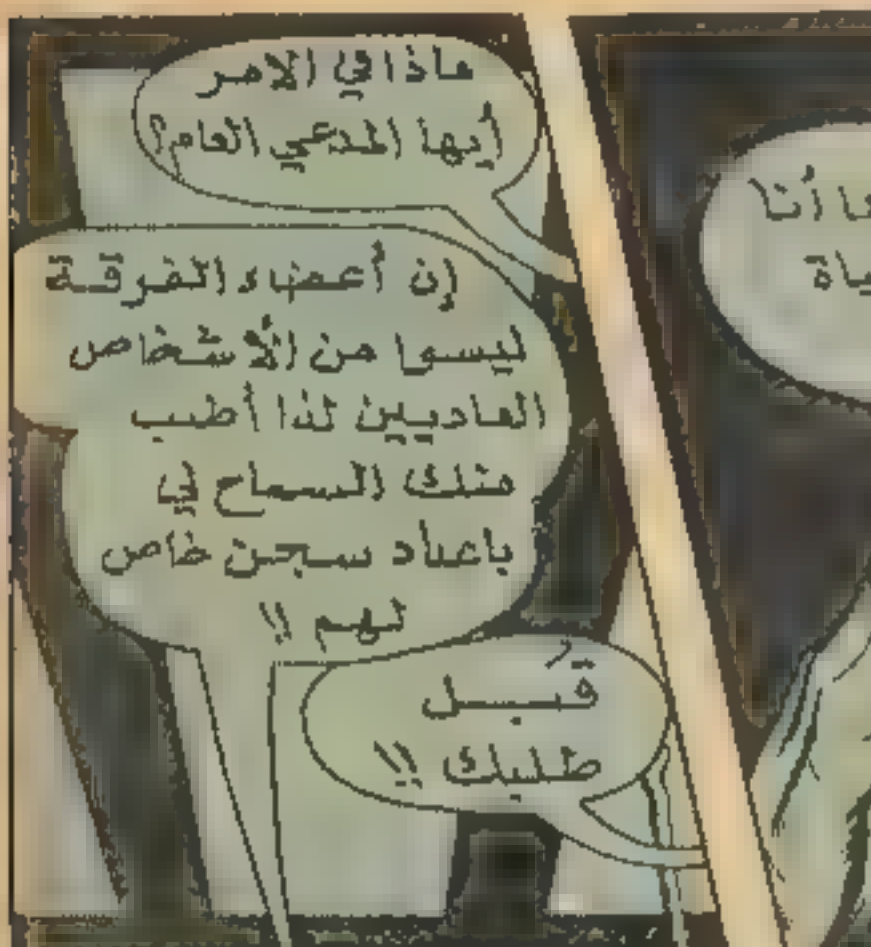 ماذا في الامر
أيها المدعي العام؟
إن أعضاء الفرقة
ليسوا من الأشخاص
العاديين لذا أطب
منك السماح لي
باعداد سجن خاص
لهم !!
قُبل
طلبك !!
أنا